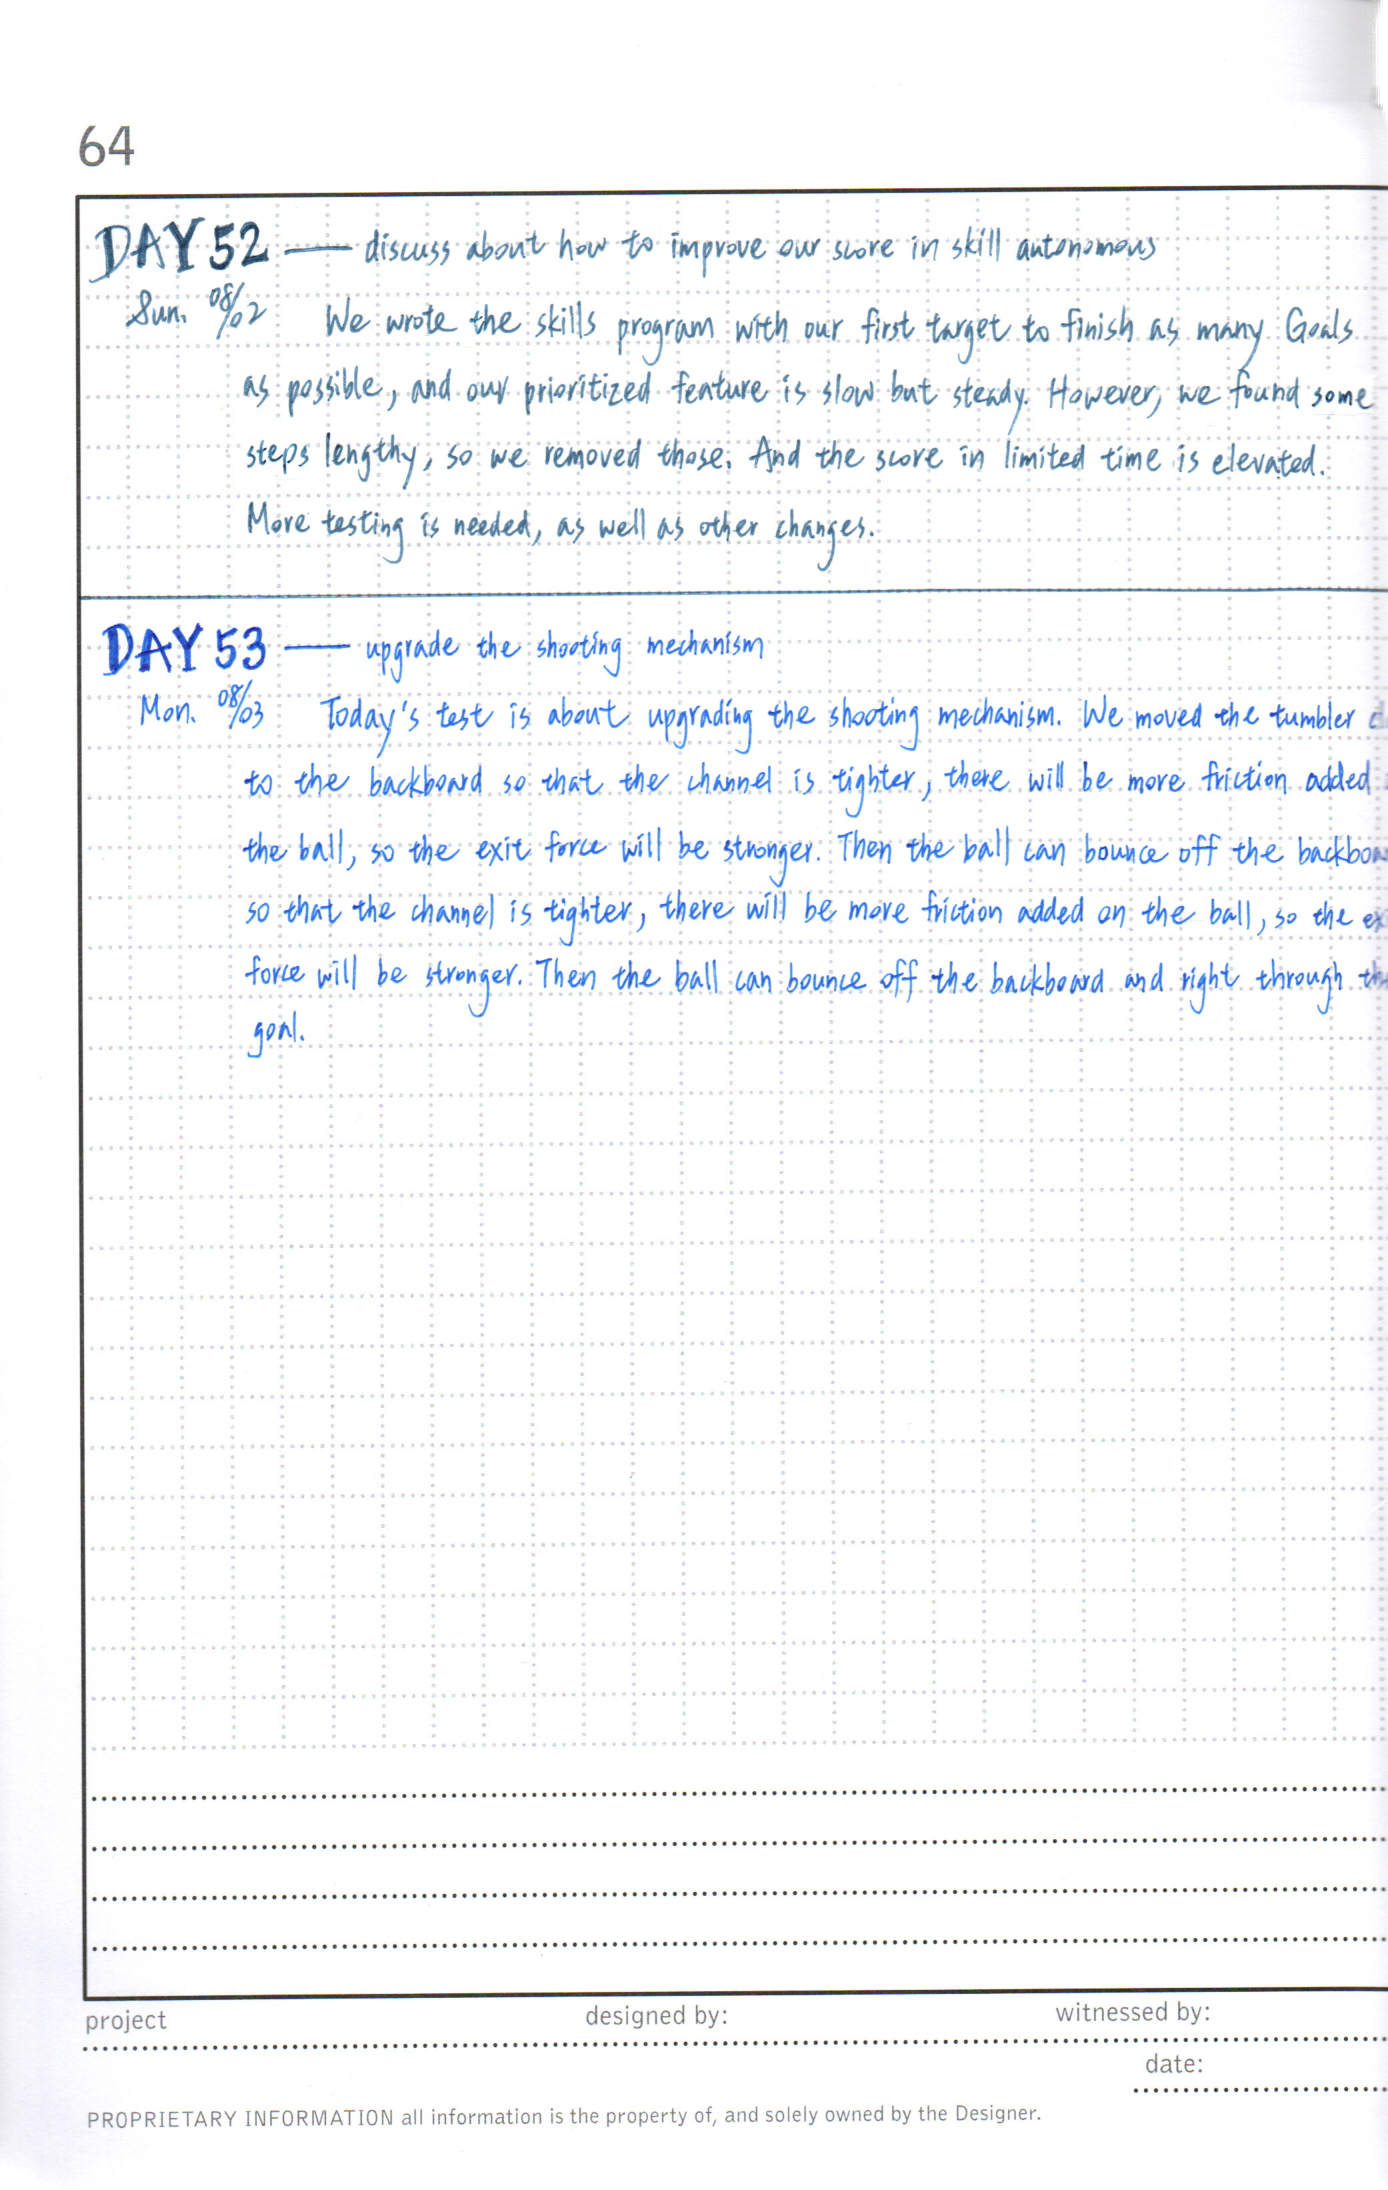 64
DAY 52 — discuss about how to improve our score in skill autonomous
Sun. 08/02 We wrote the skills program with our first target to finish as many Goals
as possible, and our prioritized feature is slow but steady. However, we found some
steps lengthy, so we removed those. And the score in limited time is elevated.
More testing is needed, as well as other changes.
DAY 53 — upgrade the shooting mechanism
Mon. 08/03 Today's test is about upgrading the shooting mechanism. We moved the tumbler
to the backboard so that the channel is tighter, there will be more friction added
the ball, so the exit force will be stronger. Then the ball can bounce off the
so that the channel is tighter, there will be more friction added on the ball, so the
force will be stronger. Then the ball can bounce off the backboard and right through
goal.
project designed by: witnessed by:
date:
PROPRIETARY INFORMATION all information is the property of, and solely owned by the Designer.